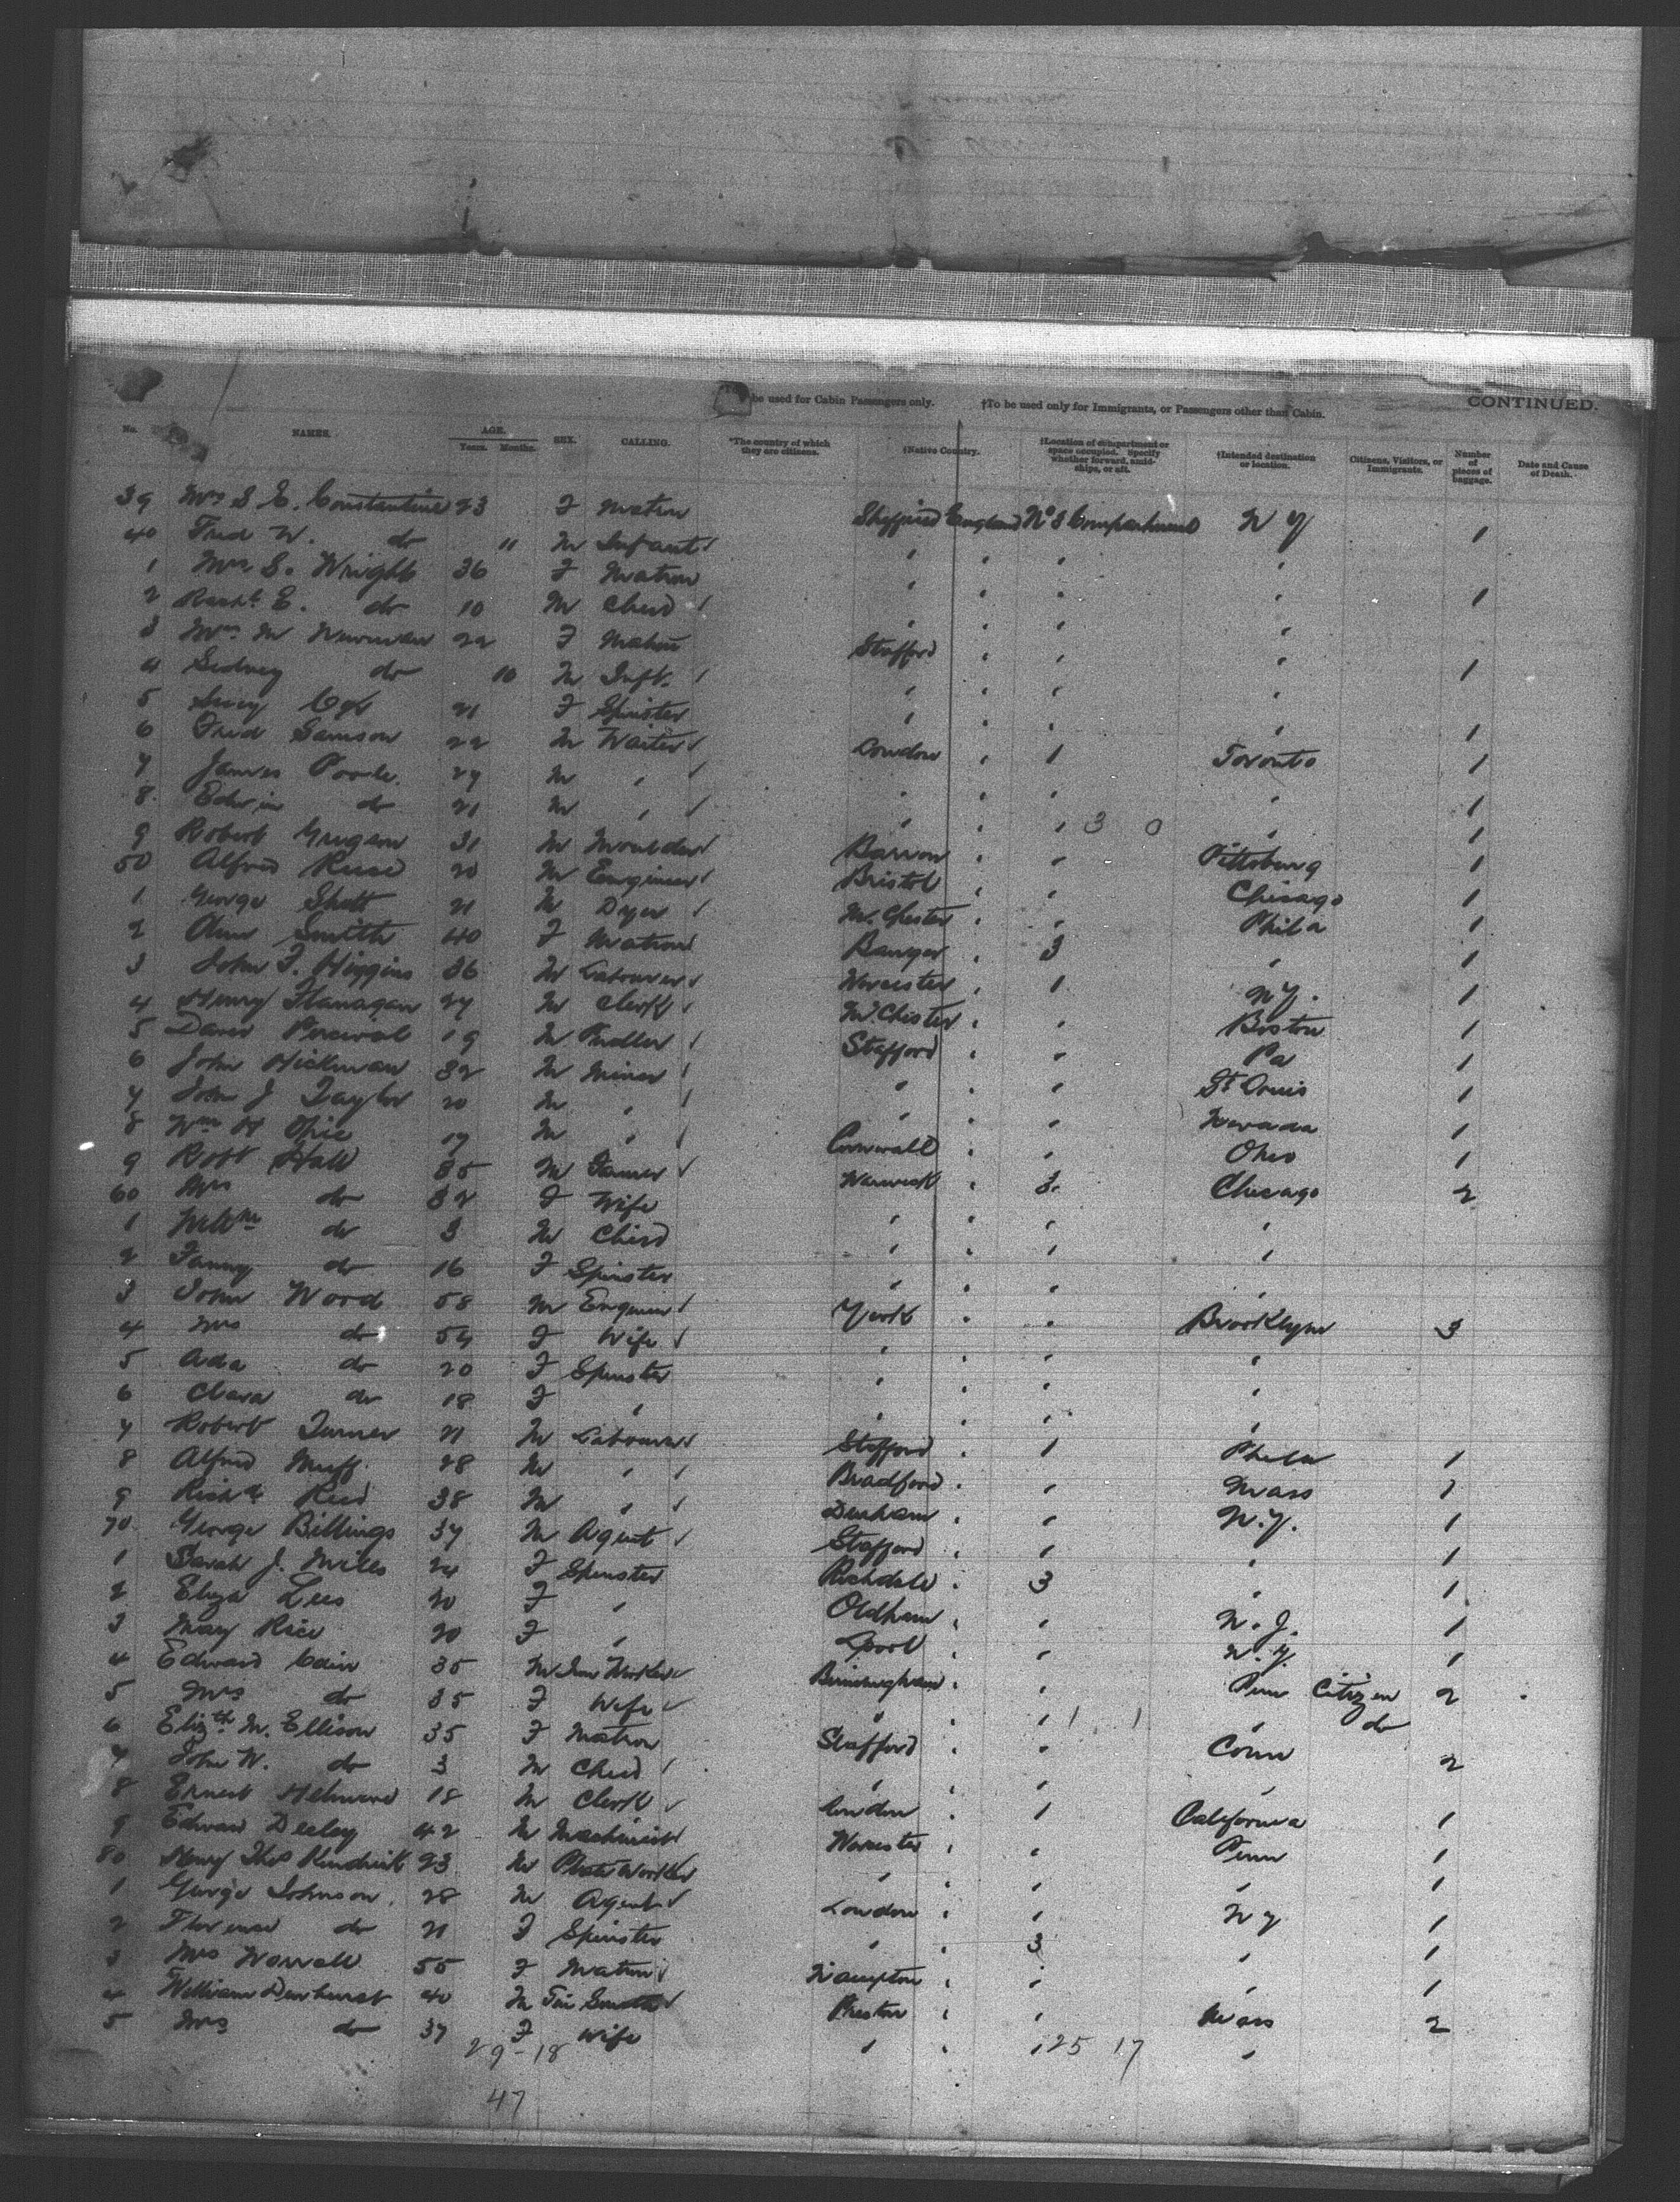 be used for Cabin Passengers only. †To be used only for Immigrants, or Passengers other than Cabin. CONTINUED.
No. NAMES. AGE. Years. Months. SEX. CALLING. *The country of which they are citizens. †Native Country. †Location of compartment or space occupied. Specify whether forward, amidships, or aft. †Intended destination or location. Citizens, Visitors, or Immigrants. Number of pieces of baggage. Date and Cause of Death.
39 Mrs S E. Constantine 23 F Matron Sheffield England No 3 Compartment N Y 1
40 Fred W. do 11 M Infant
1 Mrs S. Wright 36 F Matron 1
2 E. do 10 M Child
3 Mrs M Newman 22 F Matron Stafford 1
4 Sidney do 10 M Inft.
5 Lucy Cox 21 F Spinster 1
6 Fred Samson 22 M Waiter London 1 Toronto 1
7 James Poole 27 M 1
8 Edwin do 21 M 3 0 1
9 Robert Grugan 31 M Moulder Barrow Pittsburg 1
50 Alfred 20 M Engineer Bristol Chicago 1
1 George 21 M Dyer M. Chester Phila 1
2 Smith 40 F Matron Bangor 3 1
3 John F. Higgins 36 M Labourer Worcester 1 N Y. 1
4 Henry Flanagan 27 M Clerk M. Chester Boston 1
5 David Percival 19 M Pudller Stafford Pa 1
6 John Hickman 32 M Miner St Louis 1
7 John J Taylor 20 M Nevada 1
8 Wm H Opie 17 M Cornwall Ohio 1
9 Robt Hall 35 M Farmer Warwick 3. Chicago 2
60 Mrs do 32 F Wife
1 Willm do 3 M Child
2 Fanny do 16 F Spinster
3 John Wood 58 M Engineer York Brooklyn 3
4 Mrs do 54 F Wife
5 Ada do 20 F Spinster
6 Clara do 18 F
7 Robert Turner 21 M Labourer Stafford 1 Phila 1
8 Alfred Muff 28 M Bradford Mass 1
9 Richd Reed 38 M Durham N.Y. 1
70 George Billings 37 M Agent Stafford 1
1 Sarah J. Mills 24 F Spinster Rochdale 3 1
2 Eliza Lees 20 F Oldham N. J. 1
3 May Rice 20 F Lpool N.Y. 1
4 Edward Cain 35 M Iron Worker Birmingham Penn Citizen 2
5 Mrs do 35 F Wife do
6 Elizth M. Ellison 35 F Matron Stafford Conn 2
7 John W. do 3 M Child
8 Ernest 18 M Clerk London 1 California 1
9 Edward Deeley 42 M Machinist Worcester Penn 1
80 Henry Thos Kendrick 23 M Plate Worker 1
1 George Johnson. 28 M Agent London N Y 1
2 Florence do 21 F Spinster 3 1
3 Mrs Worrall 55 F Matron 1
4 William Dewhurst 40 M Tin Smith Preston Mass 2
5 Mrs do 37 F Wife
29-18 25 17
47